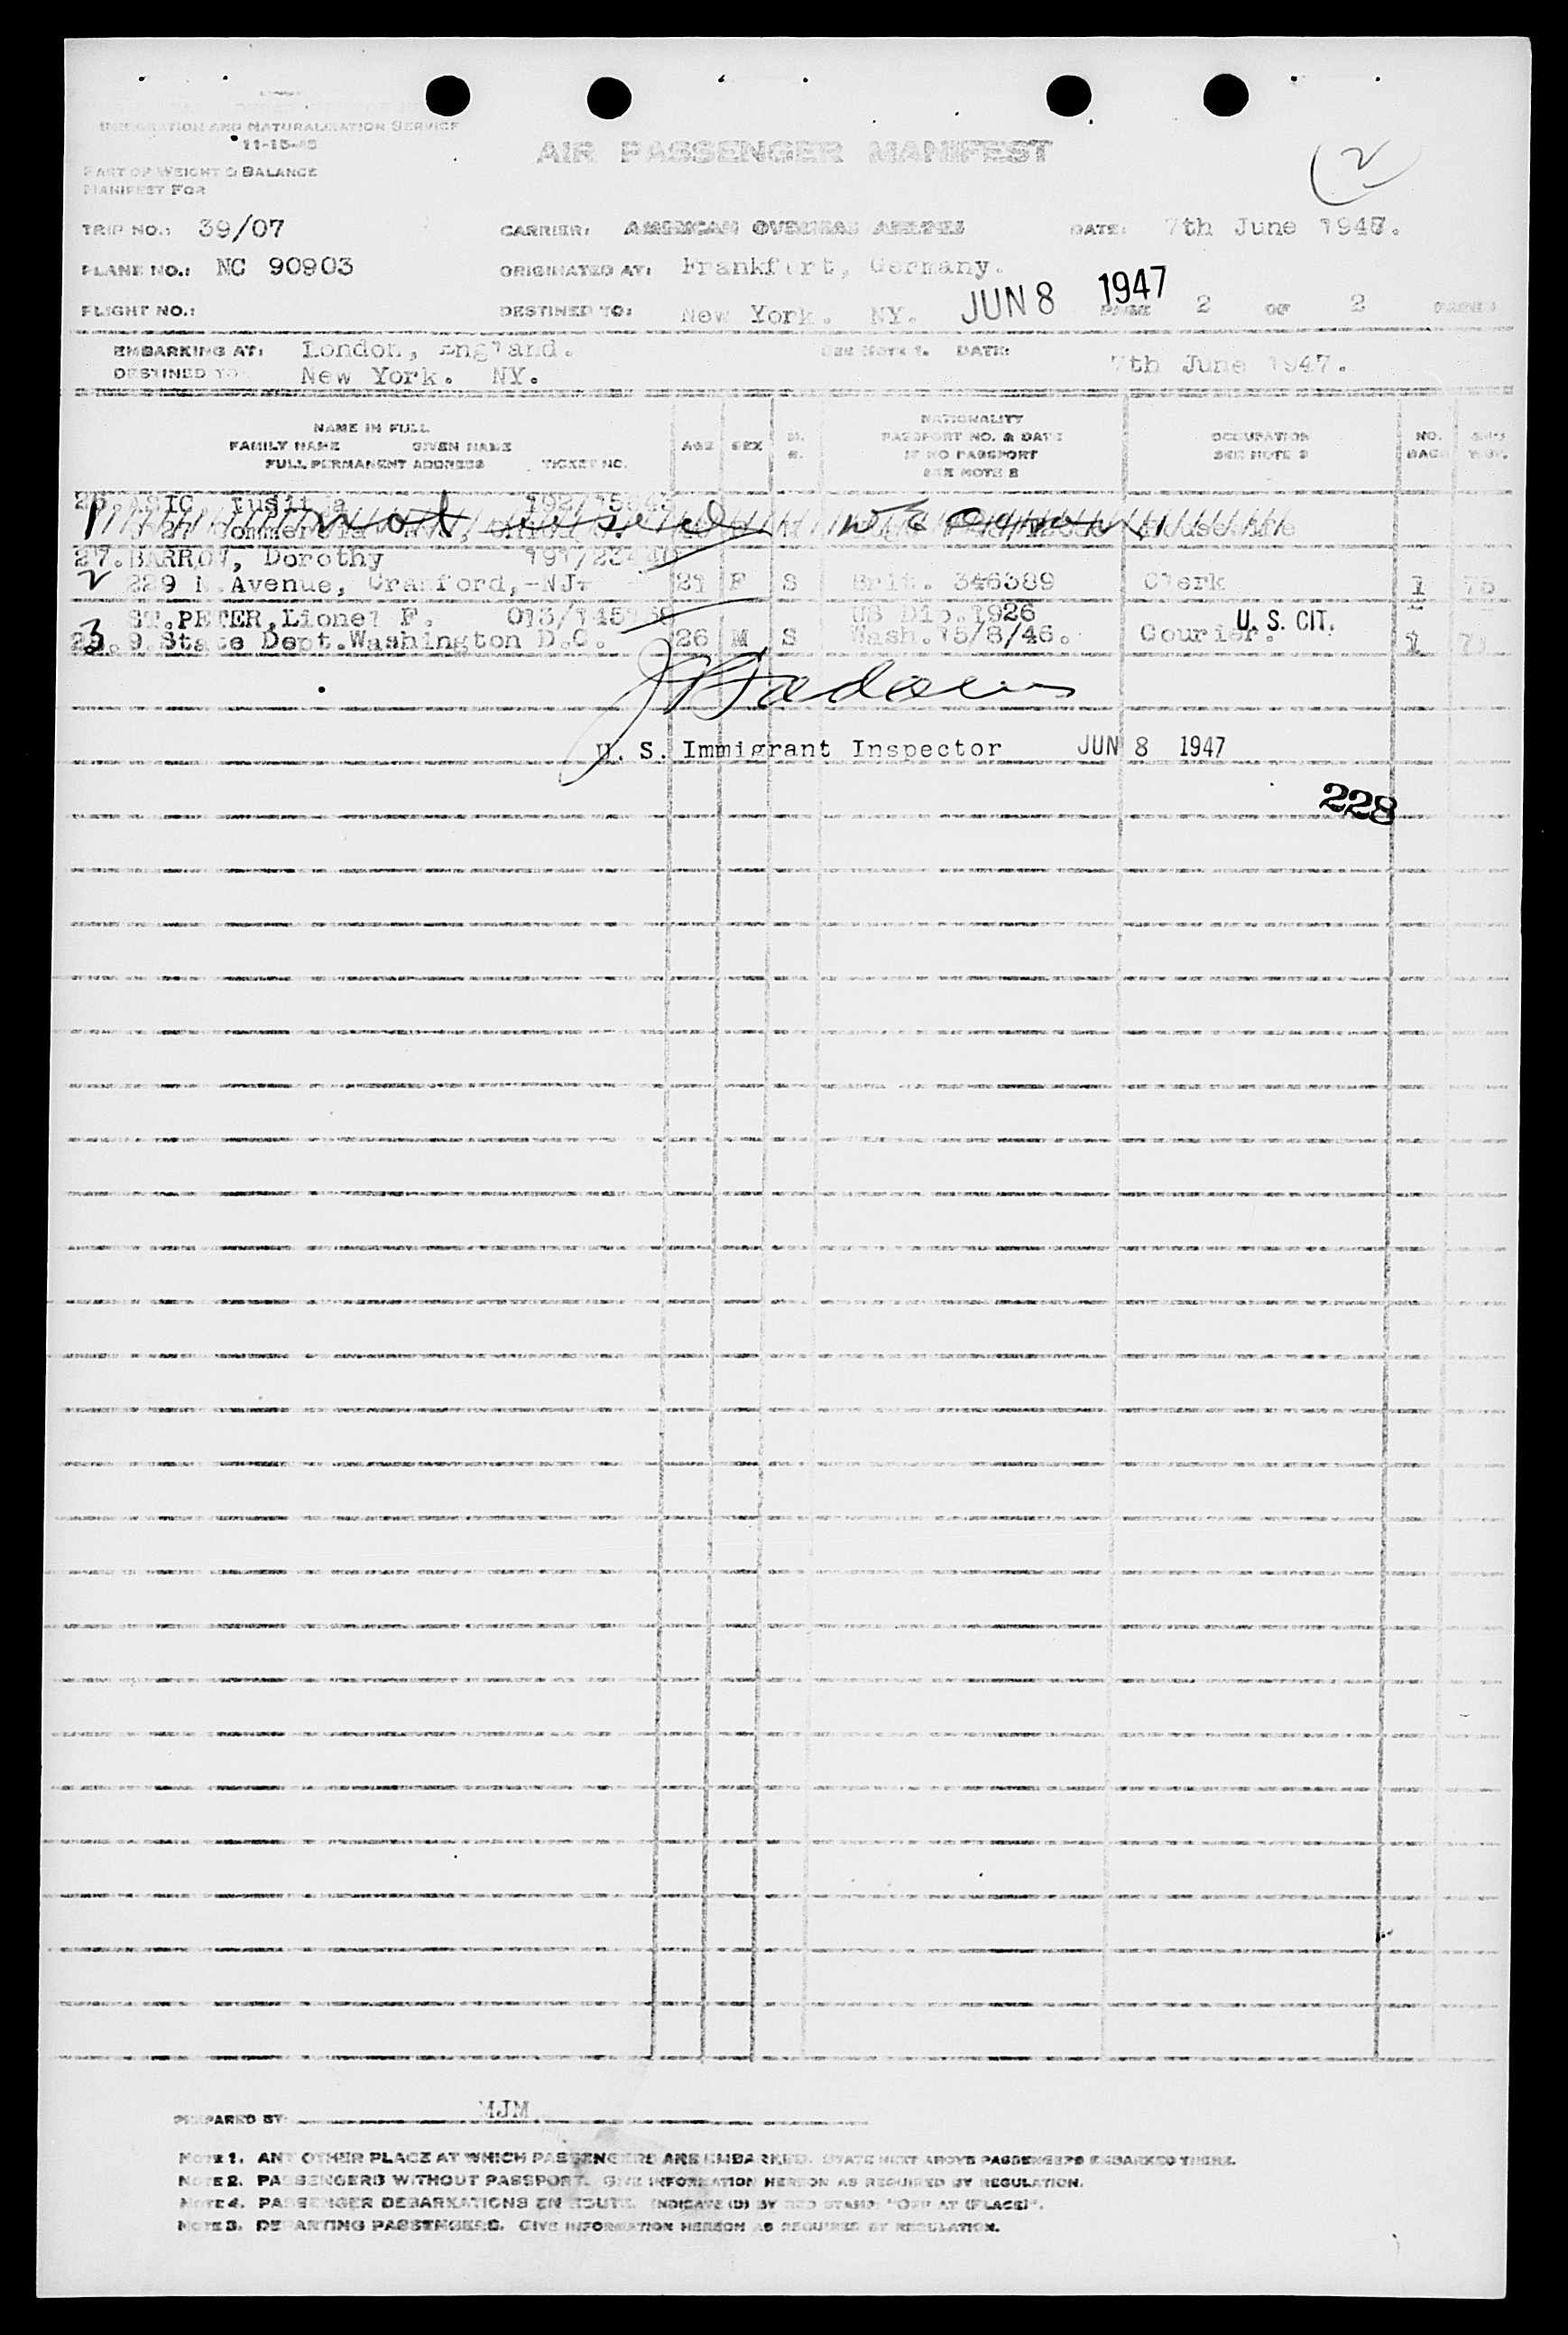 IMMIGRATION AND NATURALIZATION SERVICE
11-15-45
PART OF WEIGHT & BALANCE
MANIFEST FOR
AIR PASSENGER MANIFEST
(2)
TRIP NO.: 39/07 CARRIER: AMERICAN OVERSEAS AIRLINES DATE: 7th June 1947.
PLANE NO.: NC 90903 ORIGINATED AT: Frankfurt, Germany.
JUN 8 1947
FLIGHT NO.: DESTINED TO: New York. NY. PAGE 2 OF 2 PAGES
EMBARKING AT: London, England. SEE NOTE 1. DATE: 7th June 1947.
DESTINED TO New York. NY.
NAME IN FULL
FAMILY NAME GIVEN NAME
FULL PERMANENT ADDRESS TICKET NO.
AGE SEX
NATIONALITY
PASSPORT NO. & DATE
IF NO PASSPORT
SEE NOTE 2
OCCUPATION
SEE NOTE 3
NO. BAGS
1 not used
Housewife
27. BARROW, Dorothy
2 229 N. Avenue, Cranford, NJ. 21 F S Brit. 346389 Clerk 1 75
ST.PETER, Lionel F. US Dip. 1926
3 State Dept. Washington D.C. 26 M S Wash. 15/8/46. Courier. U. S. CIT. 1
U. S. Immigrant Inspector JUN 8 1947
228
PREPARED BY MJM
NOTE 1. ANY OTHER PLACE AT WHICH PASSENGERS ARE EMBARKED. STATE NEXT ABOVE PASSENGERS EMBARKED THERE.
NOTE 2. PASSENGERS WITHOUT PASSPORT. GIVE INFORMATION HEREON AS REQUIRED BY REGULATION.
NOTE 4. PASSENGER DEBARKATIONS EN ROUTE. INDICATE (D) BY RED STAMP "OFF AT (PLACE)".
NOTE 3. DEPARTING PASSENGERS. GIVE INFORMATION HEREON AS REQUIRED BY REGULATION.